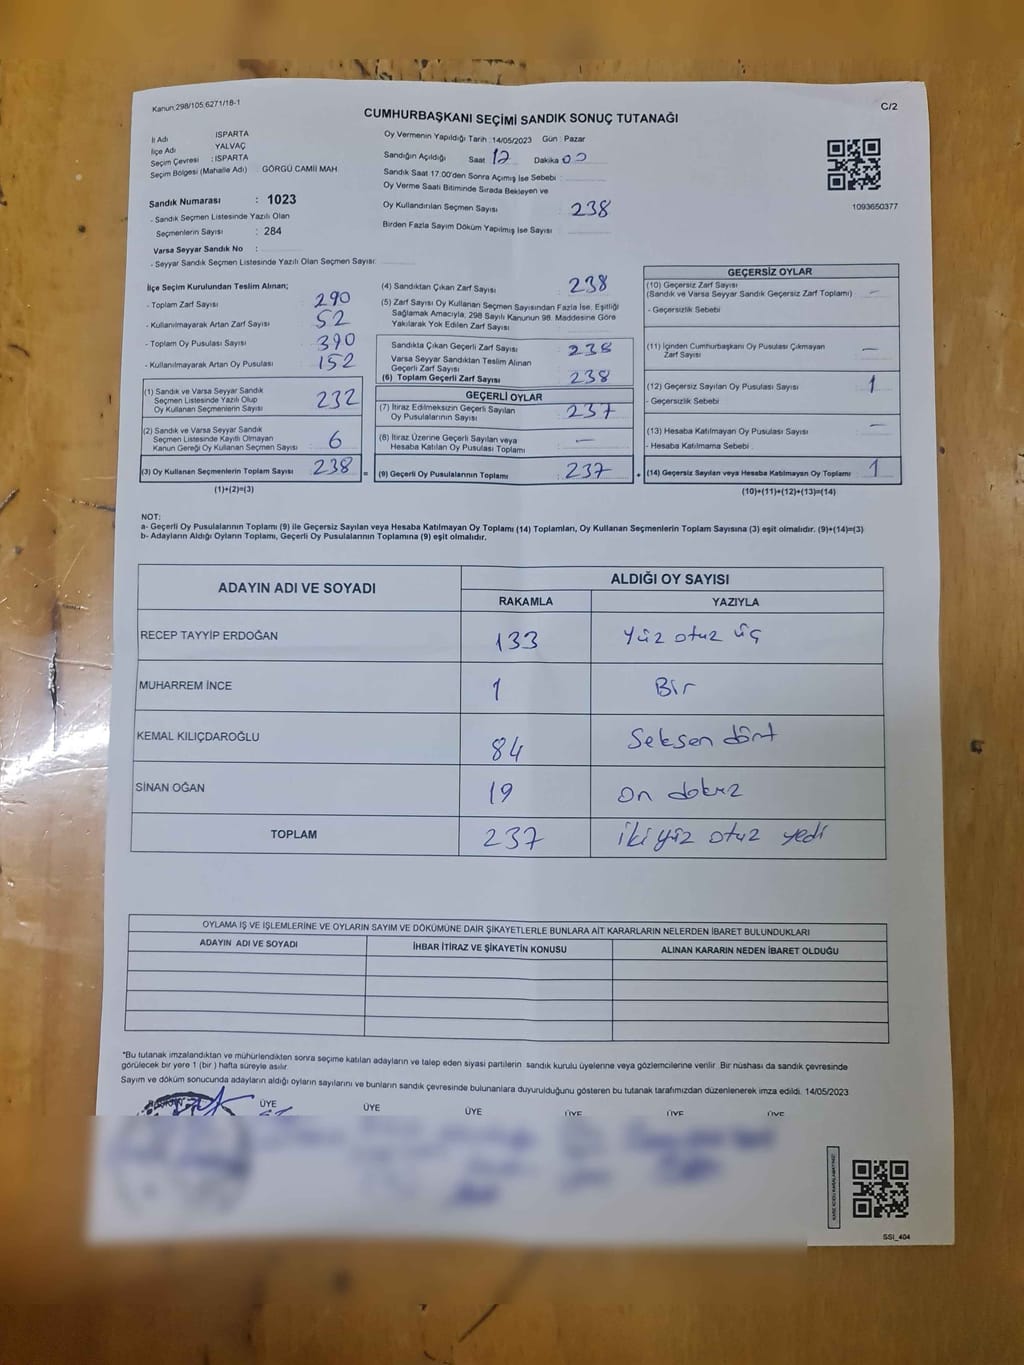 Kanun;298/105,6271/18-1
C/2
CUMHURBAŞKANI SEÇİMİ SANDIK SONUÇ TUTANAĞI
İl Adı ISPARTA
İlçe Adı YALVAÇ
Seçim Çevresi : ISPARTA
Seçim Bölgesi (Mahalle Adı) GÖRGÜ CAMİİ MAH
Sandık Numarası : 1023
- Sandık Seçmen Listesinde Yazılı Olan
Seçmenlerin Sayısı : 284
Varsa Seyyar Sandık No :
- Seyyar Sandık Seçmen Listesinde Yazılı Olan Seçmen Sayısı:
Oy Vermenin Yapıldığı Tarih : 14/05/2023 Gün : Pazar
Sandığın Açıldığı Saat 17 Dakika 00
Sandık Saat 17.00'den Sonra Açımış İse Sebebi :
Oy Verme Saati Bitiminde Sırada Bekleyen ve
Oy Kullandırılan Seçmen Sayısı : 238
Birden Fazla Sayım Döküm Yapılmış İse Sayısı :
1093650377
İlçe Seçim Kurulundan Teslim Alınan;
- Toplam Zarf Sayısı : 290
- Kullanılmayarak Artan Zarf Sayısı : 52
- Toplam Oy Pusulası Sayısı : 390
- Kullanılmayarak Artan Oy Pusulası : 152
(1) Sandık ve Varsa Seyyar Sandık
Seçmen Listesinde Yazılı Olup
Oy Kullanan Seçmenlerin Sayısı : 232
(2) Sandık ve Varsa Seyyar Sandık
Seçmen Listesinde Kayıtlı Olmayan
Kanun Gereği Oy Kullanan Seçmen Sayısı : 6
(3) Oy Kullanan Seçmenlerin Toplam Sayısı : 238 =
(1)+(2)=(3)
(4) Sandıktan Çıkan Zarf Sayısı : 238
(5) Zarf Sayısı Oy Kullanan Seçmen Sayısından Fazla İse, Eşitliği
Sağlamak Amacıyla, 298 Sayılı Kanunun 98. Maddesine Göre
Yakılarak Yok Edilen Zarf Sayısı :
Sandıkla Çıkan Geçerli Zarf Sayısı : 238
Varsa Seyyar Sandıktan Teslim Alınan
Geçerli Zarf Sayısı :
(6) Toplam Geçerli Zarf Sayısı : 238
GEÇERLİ OYLAR
(7) İtiraz Edilmeksizin Geçerli Sayılan
Oy Pusulalarının Sayısı : 237
(8) İtiraz Üzerine Geçerli Sayılan veya
Hesaba Katılan Oy Pusulası Toplamı : —
(9) Geçerli Oy Pusulalarının Toplamı : 237 +
GEÇERSİZ OYLAR
(10) Geçersiz Zarf Sayısı
(Sandık ve Varsa Seyyar Sandık Geçersiz Zarf Toplamı) : —
- Geçersizlik Sebebi
(11) İçinden Cumhurbaşkanı Oy Pusulası Çıkmayan
Zarf Sayısı : —
(12) Geçersiz Sayılan Oy Pusulası Sayısı : 1
- Geçersizlik Sebebi
(13) Hesaba Katılmayan Oy Pusulası Sayısı : —
- Hesaba Katılmama Sebebi
(14) Geçersiz Sayılan veya Hesaba Katılmayan Oy Toplamı : 1
(10)+(11)+(12)+(13)=(14)
NOT:
a- Geçerli Oy Pusulalarının Toplamı (9) ile Geçersiz Sayılan veya Hesaba Katılmayan Oy Toplamı (14) Toplamları, Oy Kullanan Seçmenlerin Toplam Sayısına (3) eşit olmalıdır. (9)+(14)=(3)
b- Adayların Aldığı Oyların Toplamı, Geçerli Oy Pusulalarının Toplamına (9) eşit olmalıdır.
ADAYIN ADI VE SOYADI
ALDIĞI OY SAYISI
RAKAMLA YAZIYLA
RECEP TAYYİP ERDOĞAN 133 Yüz otuz üç
MUHARREM İNCE 1 Bir
KEMAL KILIÇDAROĞLU 84 Seksen dört
SİNAN OĞAN 19 On dokuz
TOPLAM 237 İki yüz otuz yedi
OYLAMA İŞ VE İŞLEMLERİNE VE OYLARIN SAYIM VE DÖKÜMÜNE DAİR ŞİKAYETLERLE BUNLARA AİT KARARLARIN NELERDEN İBARET BULUNDUKLARI
ADAYIN ADI VE SOYADI İHBAR İTİRAZ VE ŞİKAYETİN KONUSU ALINAN KARARIN NEDEN İBARET OLDUĞU
*Bu tutanak imzalandıktan ve mühürlendikten sonra seçime katılan adayların ve talep eden siyasi partilerin sandık kurulu üyelerine veya gözlemcilerine verilir. Bir nüshası da sandık çevresinde
görülecek bir yere 1 (bir ) hafta süreyle asılır.
Sayım ve döküm sonucunda adayların aldığı oyların sayılarını ve bunların sandık çevresinde bulunanlara duyurulduğunu gösteren bu tutanak tarafımızdan düzenlenerek imza edildi. 14/05/2023
ÜYE ÜYE ÜYE ÜYE ÜYE ÜYE
SSI_404